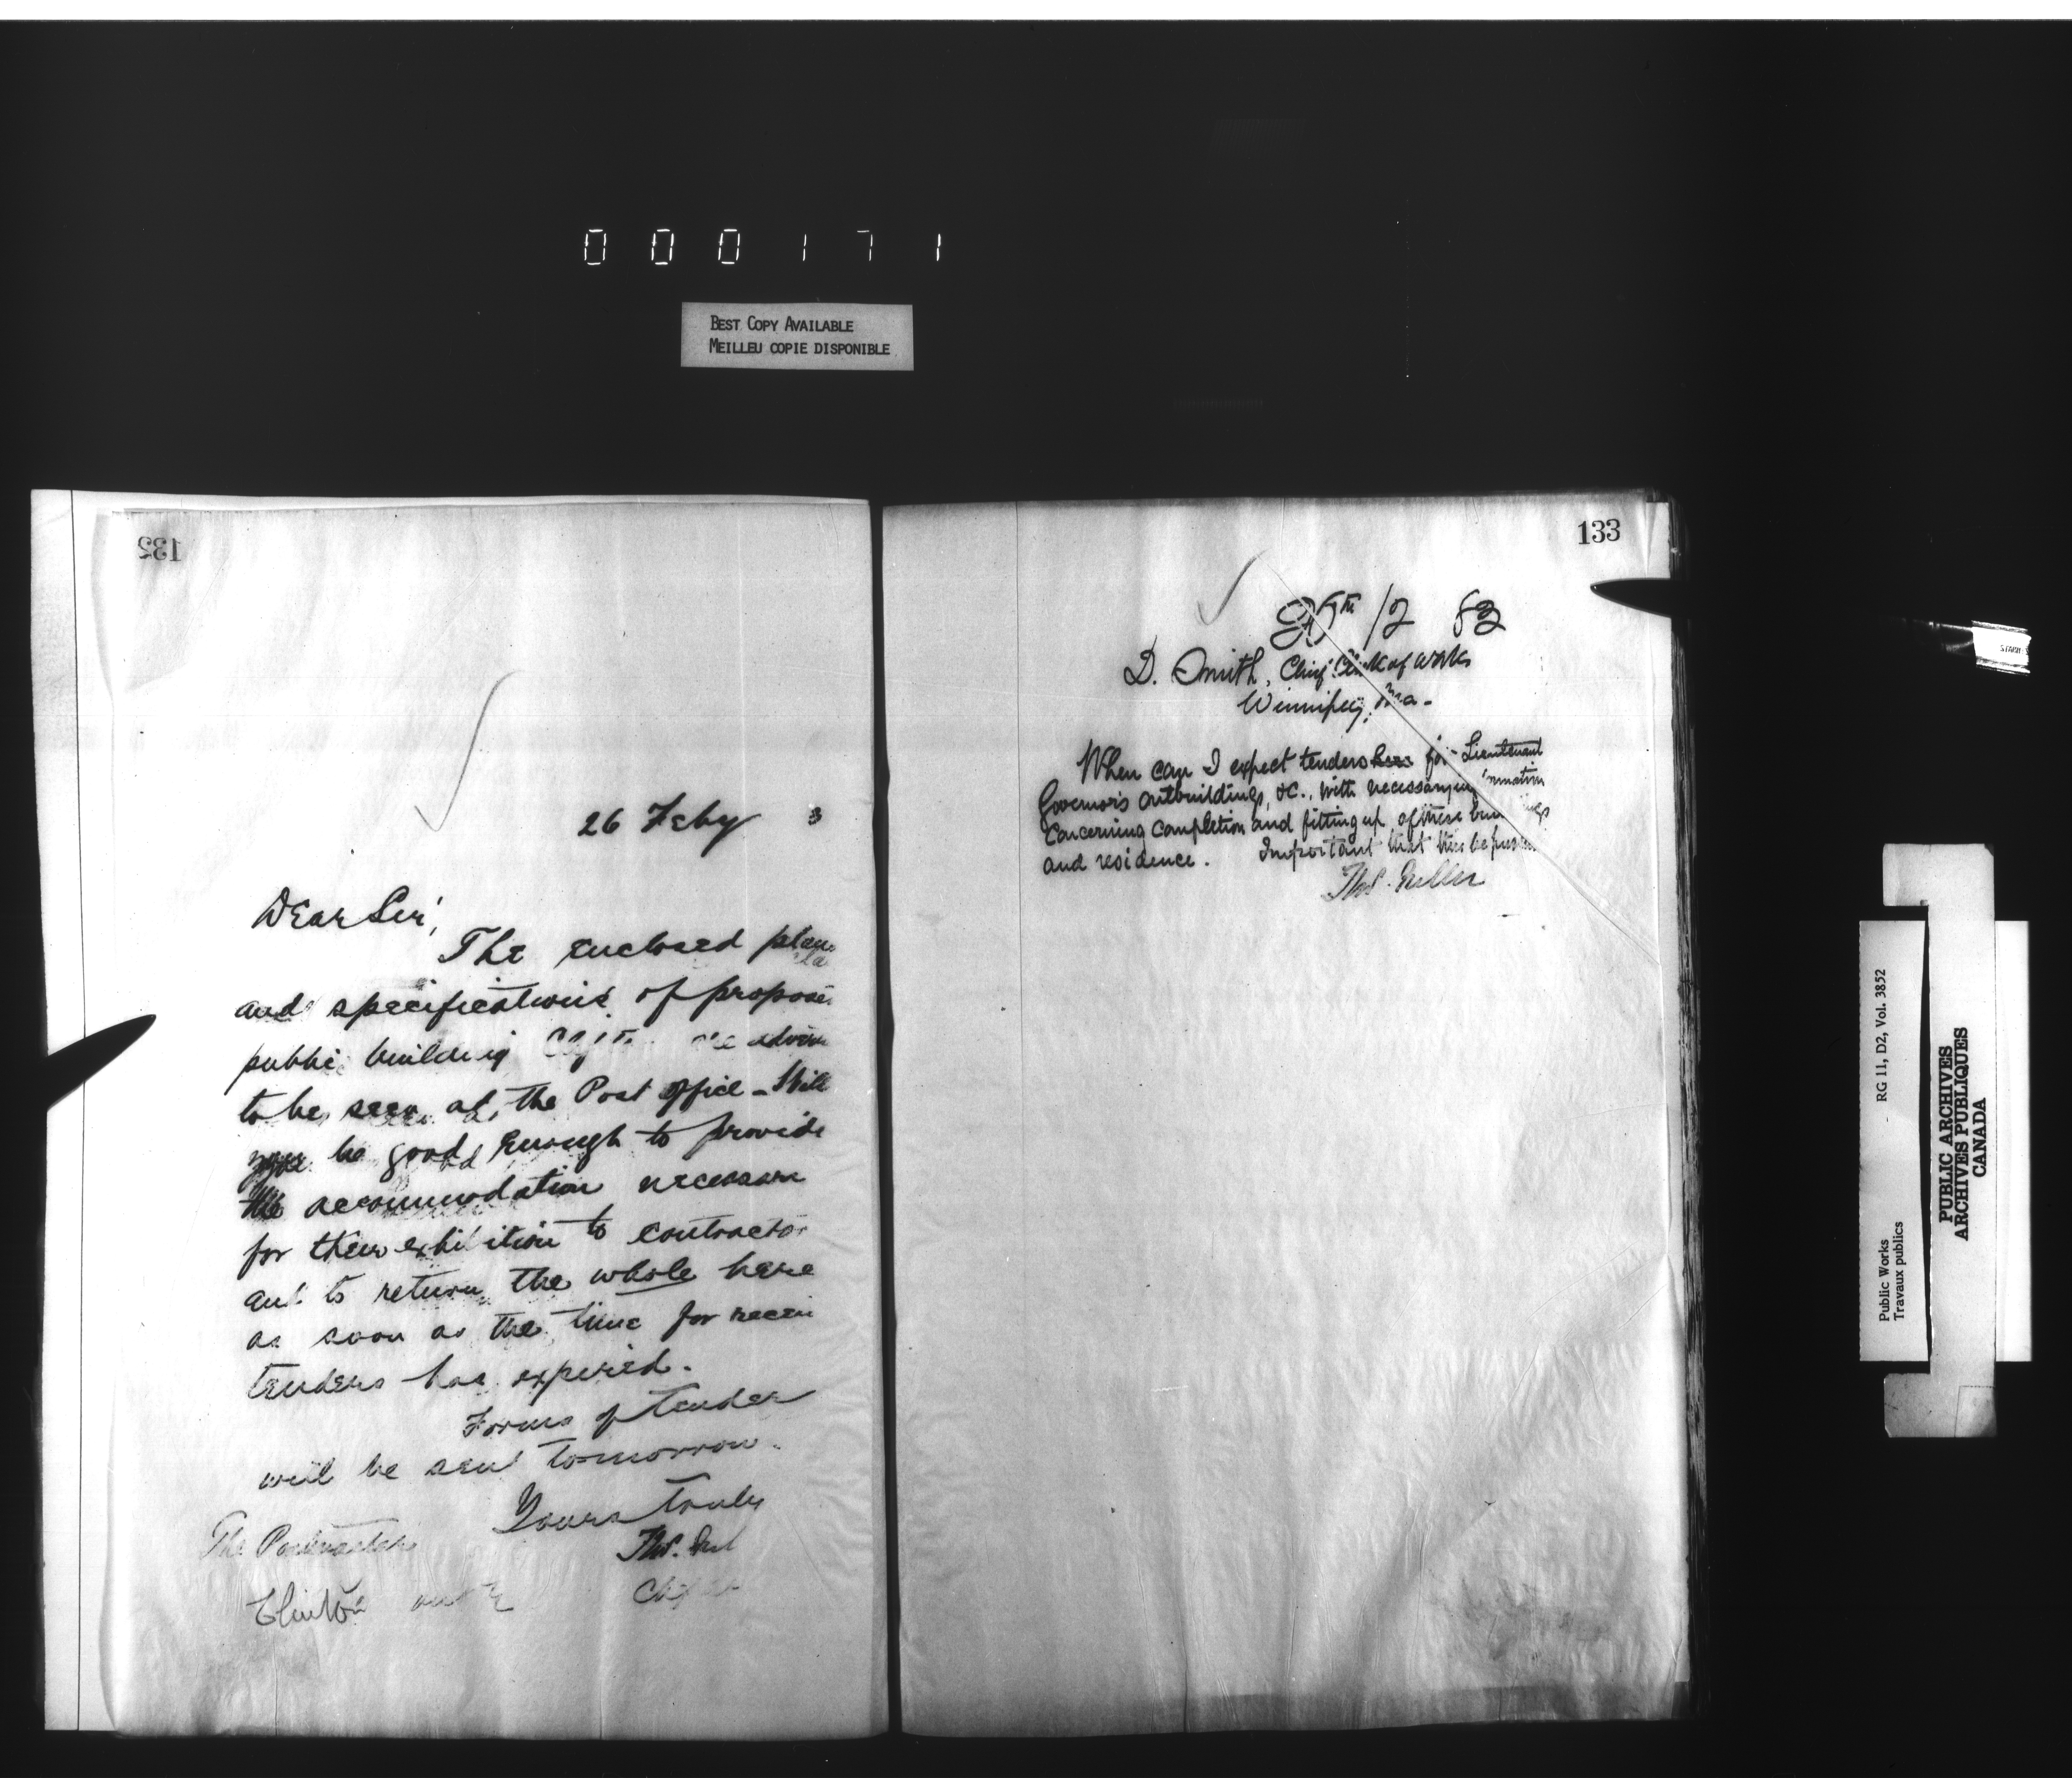 000171
BEST COPY AVAILABLE
MEILLEU COPIE DISPONIBLE
132
26 Feby 3
Dear Sir,
The enclosed plan
and specifications of propose
public building
to be seen at the Post Office - Will
you be good enough to provide
the accommodation necessary
for their exhibition to contractor
and to return the whole here
as soon as the time for recei
tenders has expired.
Forms of tender
will be sent tomorrow.
Yours truly
The Postmaster
Thos.
Clinton
133
/2 83
D. Smith, Chief Clerk of Works
Winnipeg, Ma-
When can I expect tenders for Lieutenant
Governor's outbuildings, &c., with necessary
concerning completion and fitting up of these
and residence. Important that this be
Thos. Fuller
Public Works
Travaux publics
RG 11, D2, Vol. 3852
PUBLIC ARCHIVES
ARCHIVES PUBLIQUES
CANADA